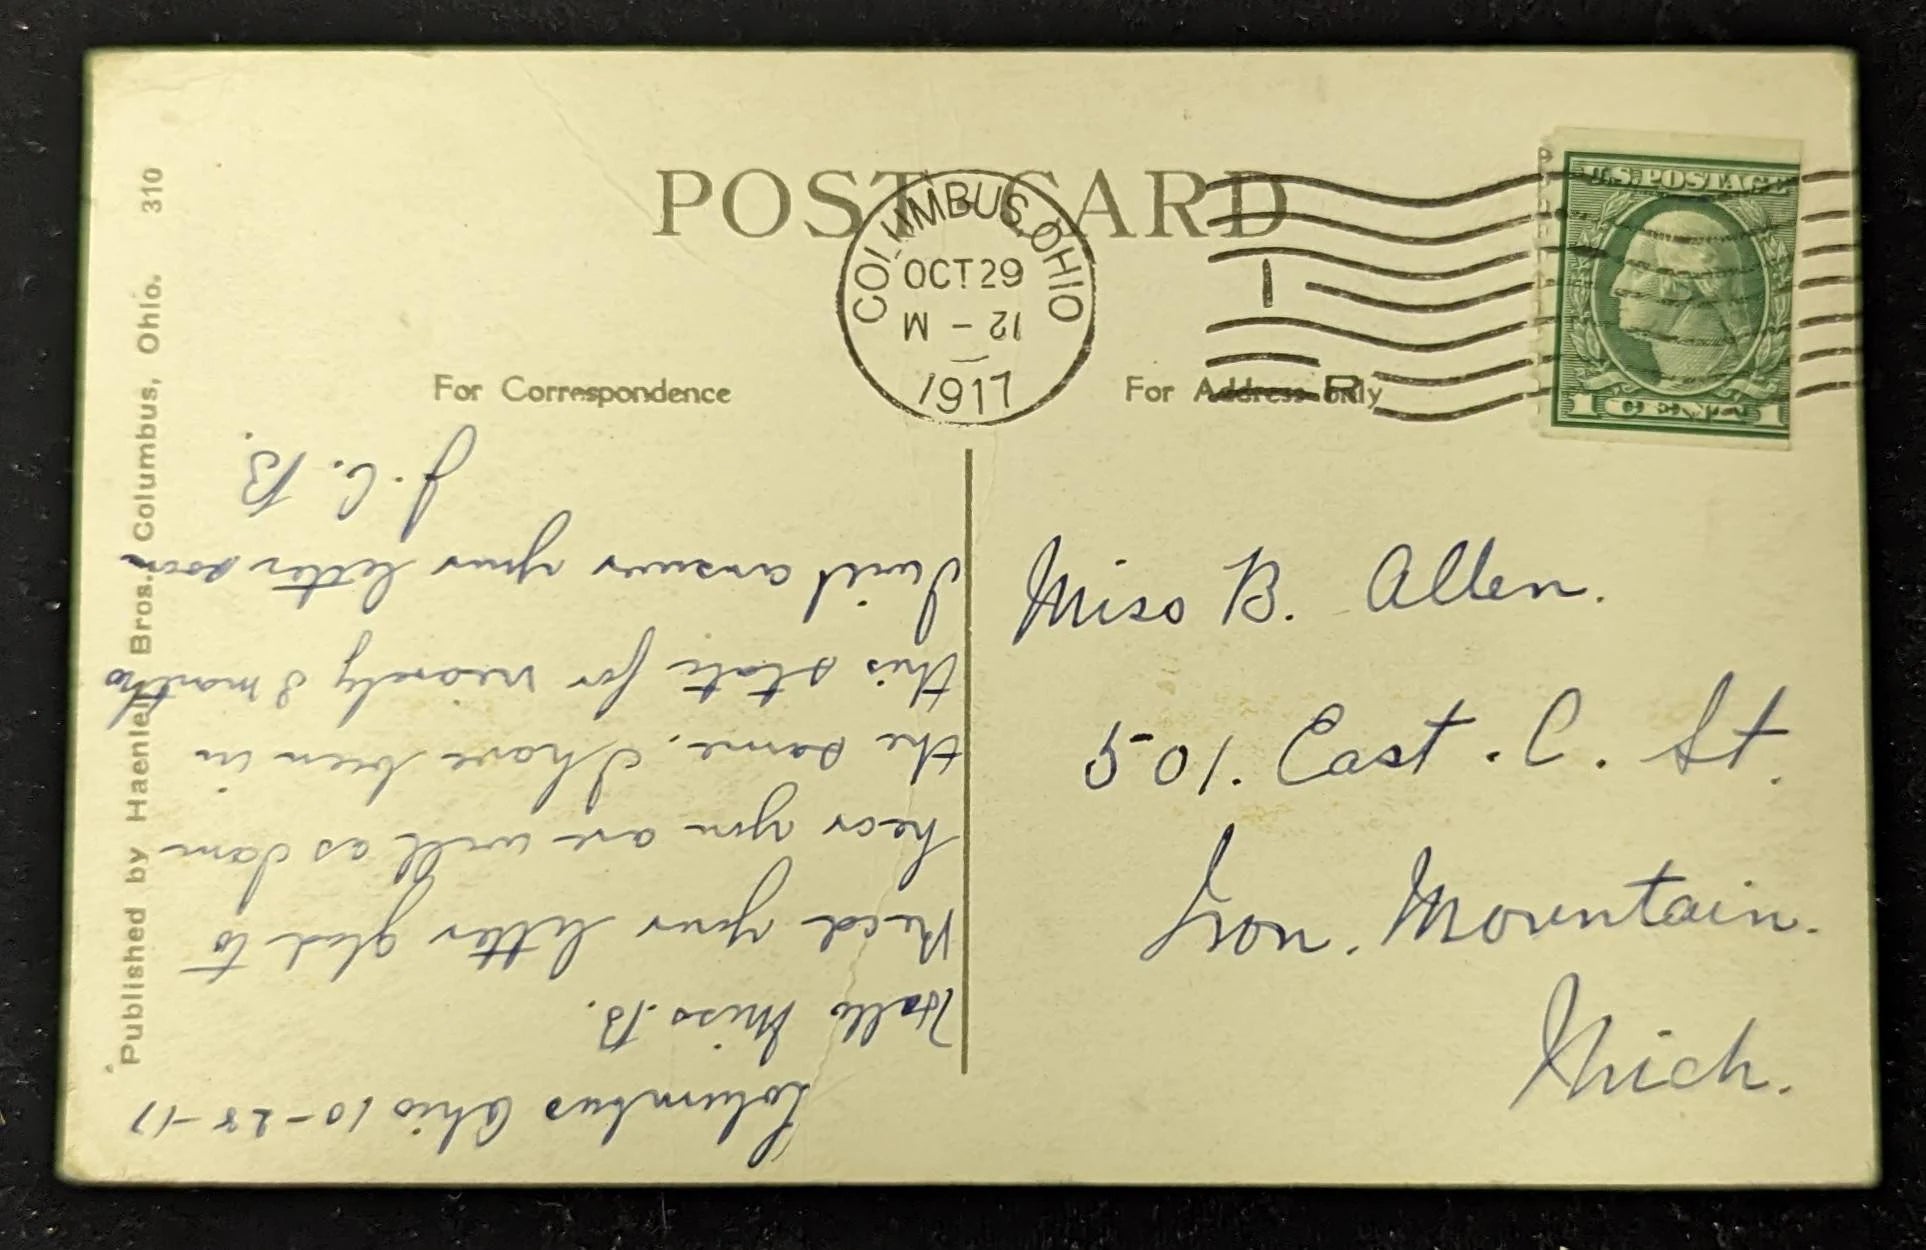 POST CARD
COLUMBUS, OHIO
OCT 29
12 - M
1917
1
U.S. POSTAGE
1 CENT 1
For Correspondence
For Address Only
Published by Haenlein Bros. Columbus, Ohio. 310
Columbus Ohio 10-28-17
Hallo Miss B.
Recd your letter glad to
hear you are well as I am
the same. I have been in
this state for nearly 3 months
I will answer your letter soon
J. C. B.
Miss B. Allen.
501. East. C. St.
Iron. Mountain.
Mich.